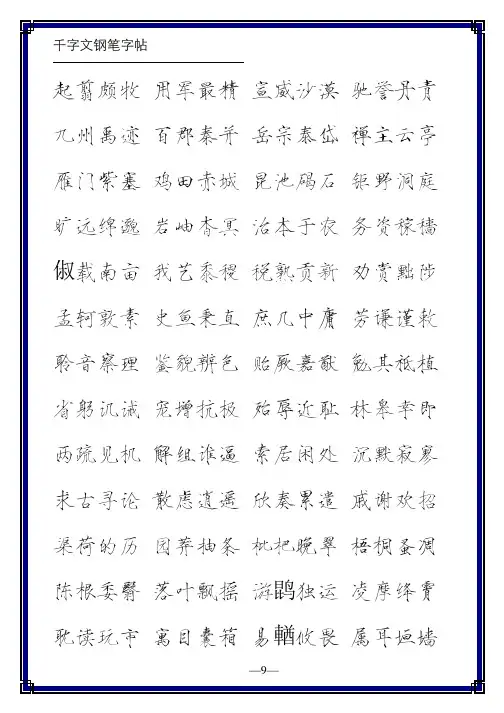 千字文钢笔字帖
起翦颇牧 用军最精 宣威沙漠 驰誉丹青
九州禹迹 百郡秦并 岳宗泰岱 禪主云亭
雁门紫塞 鸡田赤城 昆池碣石 钜野洞庭
旷远绵邈 岩岫杳冥 治本于农 务资稼穑
俶载南亩 我艺黍稷 税熟贡新 劝赏黜陟
孟轲敦素 史鱼秉直 庶几中庸 劳谦谨敕
聆音察理 鉴貌辨色 贻厥嘉猷 勉其祗植
省躬讥诫 宠增抗极 殆辱近耻 林皋幸即
两疏见机 解组谁逼 索居闲处 沉默寂寥
求古寻论 散虑逍遥 欣奏累遣 戚谢欢招
渠荷的历 园莽抽条 枇杷晚翠 梧桐蚤凋
陈根委翳 落叶飘摇 游鹍独运 凌摩绛霄
耽读玩市 寓目囊箱 易輶攸畏 属耳垣墙
—9—